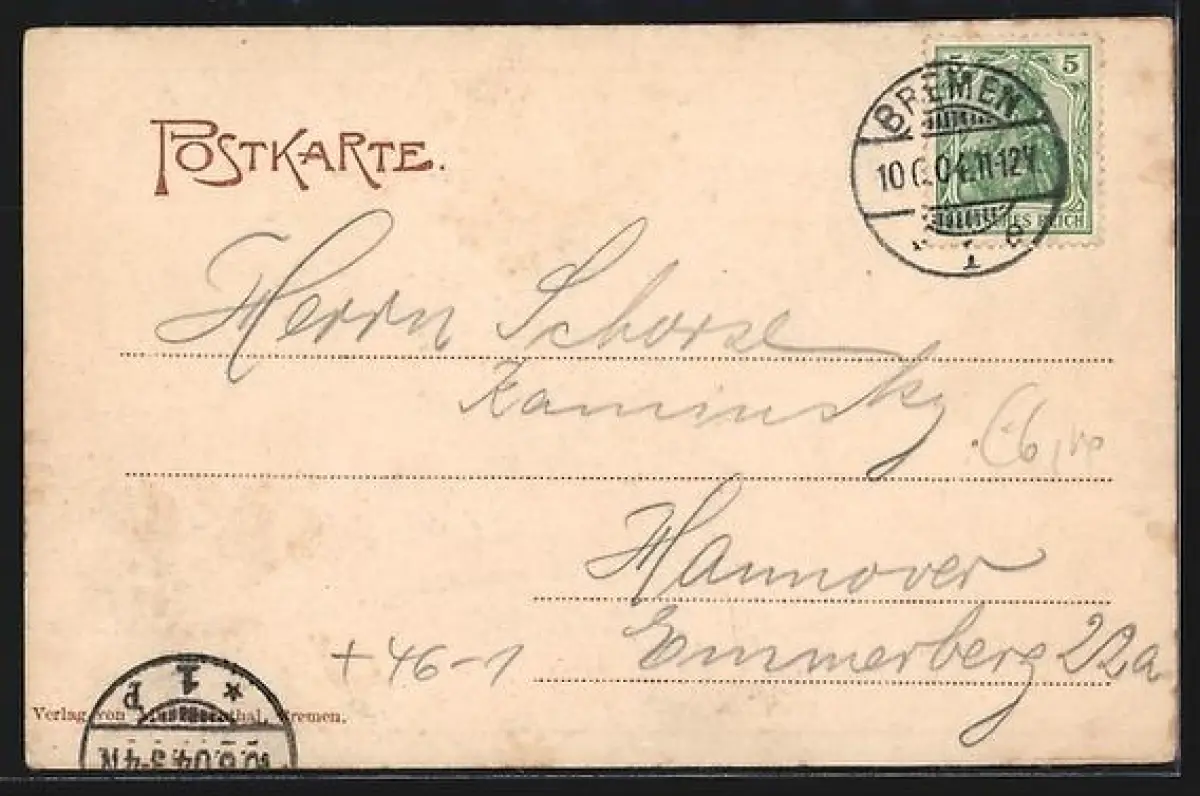 POSTKARTE.
5
BREMEN
10.6.04.11-12V.
1 e
Herrn Schorse
Kaminsky
Hannover
Emmerberg 22a
+ 46-1
1
p
Verlag von thal, Bremen.
10.6.04.3-4N